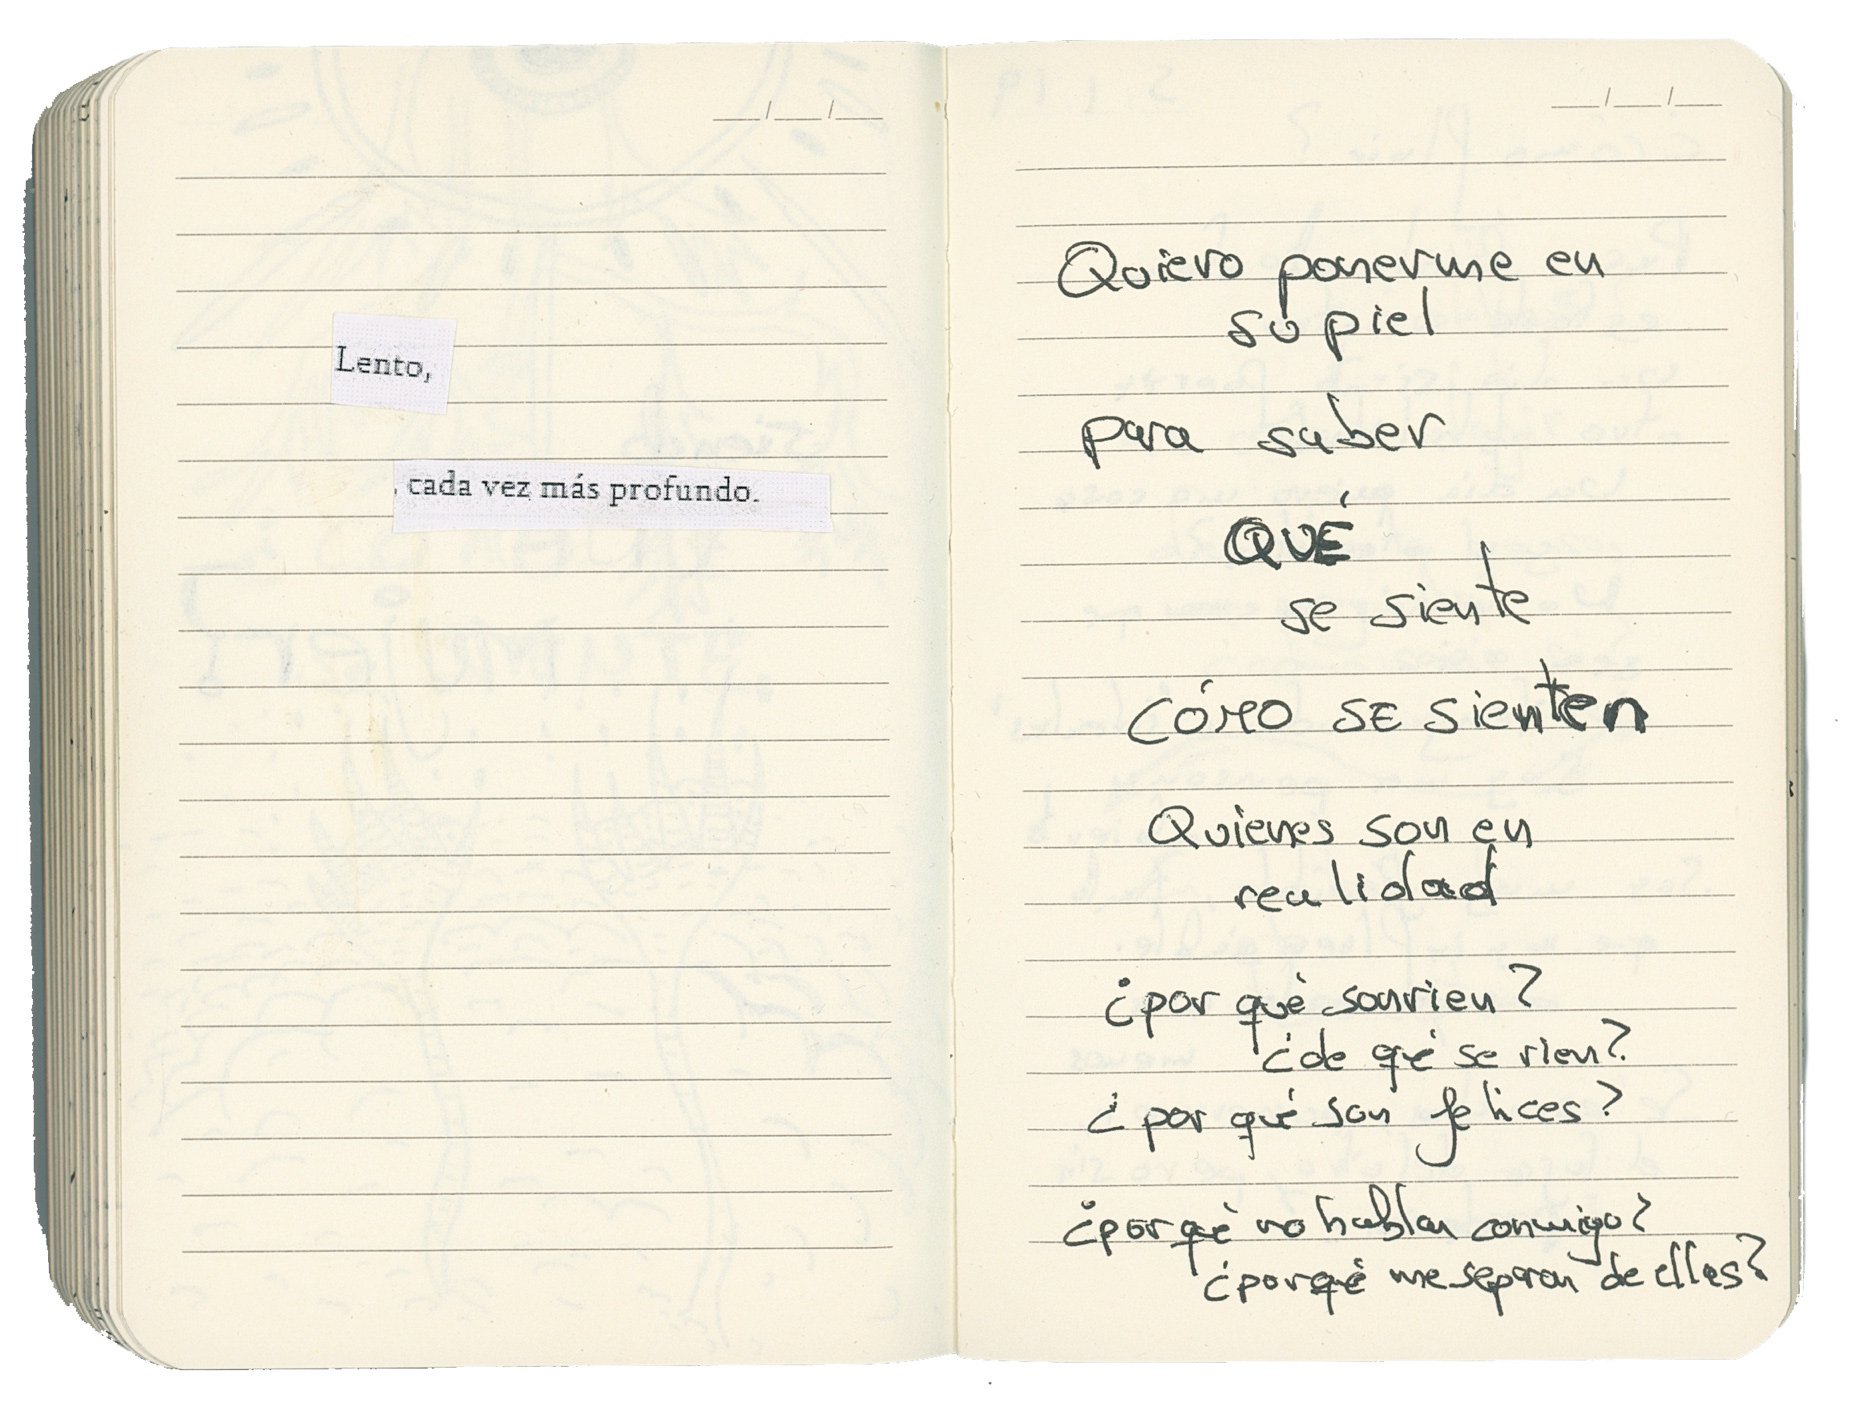 Lento,
, cada vez más profundo.
Quiero ponerme en
su piel
para saber
QUÉ
se siente
CÓMO SE sienten
Quienes son en
realidad
¿por qué sonrien?
¿de qué se rien?
¿por qué son felices?
¿por qué no hablan conmigo?
¿por qué me separan de ellas?